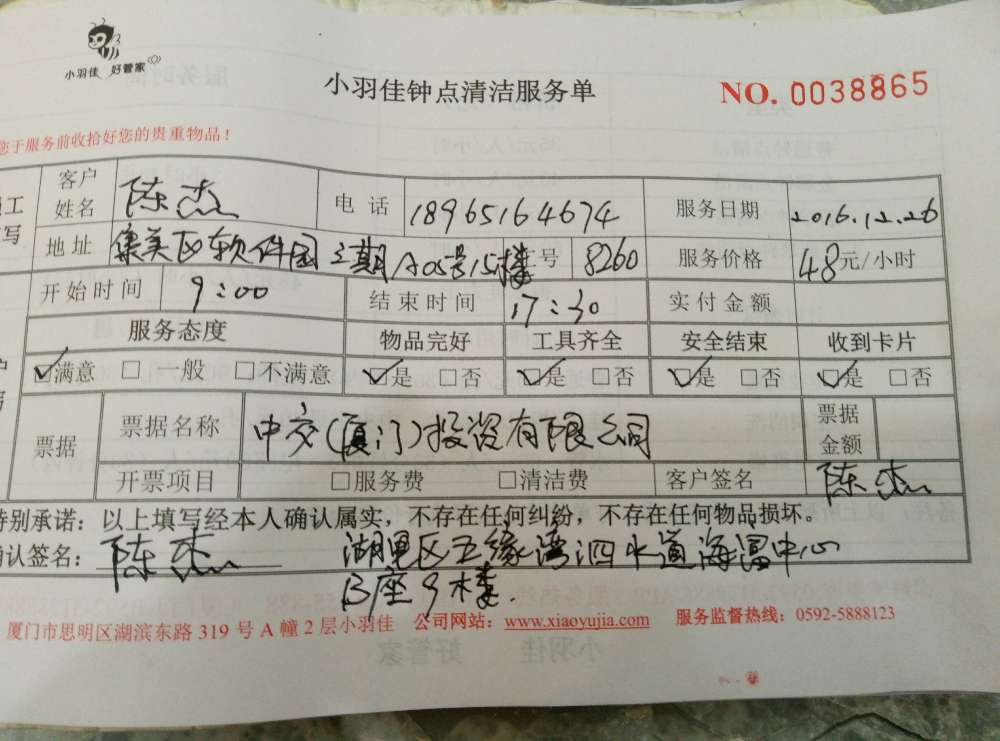 小羽佳 好管家
小羽佳钟点清洁服务单
NO. 0038865
您于服务前收拾好您的贵重物品！
员工 客户姓名 陈杰 电话 18965164674 服务日期 2016.12.26
写 地址 集美区软件园三期A05号15楼 号 8260 服务价格 48元/小时
开始时间 9:00 结束时间 17:30 实付金额
服务态度 物品完好 工具齐全 安全结束 收到卡片
☑满意 □一般 □不满意 ☑是 □否 ☑是 □否 ☑是 □否 ☑是 □否
票据 票据名称 中交(厦门)投资有限公司 票据金额
开票项目 □服务费 □清洁费 客户签名 陈杰
特别承诺：以上填写经本人确认属实，不存在任何纠纷，不存在任何物品损坏。
确认签名：陈杰 湖里区五缘湾泗水道海富中心
B座9楼.
厦门市思明区湖滨东路 319 号 A 幢 2 层小羽佳 公司网站：www.xiaoyujia.com 服务监督热线：0592-5888123